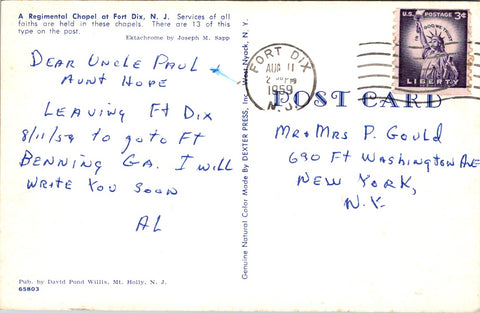 A Regimental Chapel at Fort Dix, N. J. Services of all
faiths are held in these chapels. There are 13 of this
type on the post.
Ektachrome by Joseph M. Sapp
DEAR UNCLE PAUL +
AUNT HOPE
LEAVING FT DIX
8/11/59 TO GO TO FT
BENNING GA. I WILL
WRITE YOU SOON
AL
Pub. by David Pond Willis, Mt. Holly, N. J.
65803
Genuine Natural Color Made By DEXTER PRESS, Inc. West Nyack, N. Y.
FORT DIX
AUG 11
2 PM
1959
N.J.
U.S. POSTAGE 3¢
IN GOD WE TRUST
LIBERTY
POST CARD
MR & MRS P. GOULD
690 FT WASHINGTON AVE
NEW YORK,
N.Y.